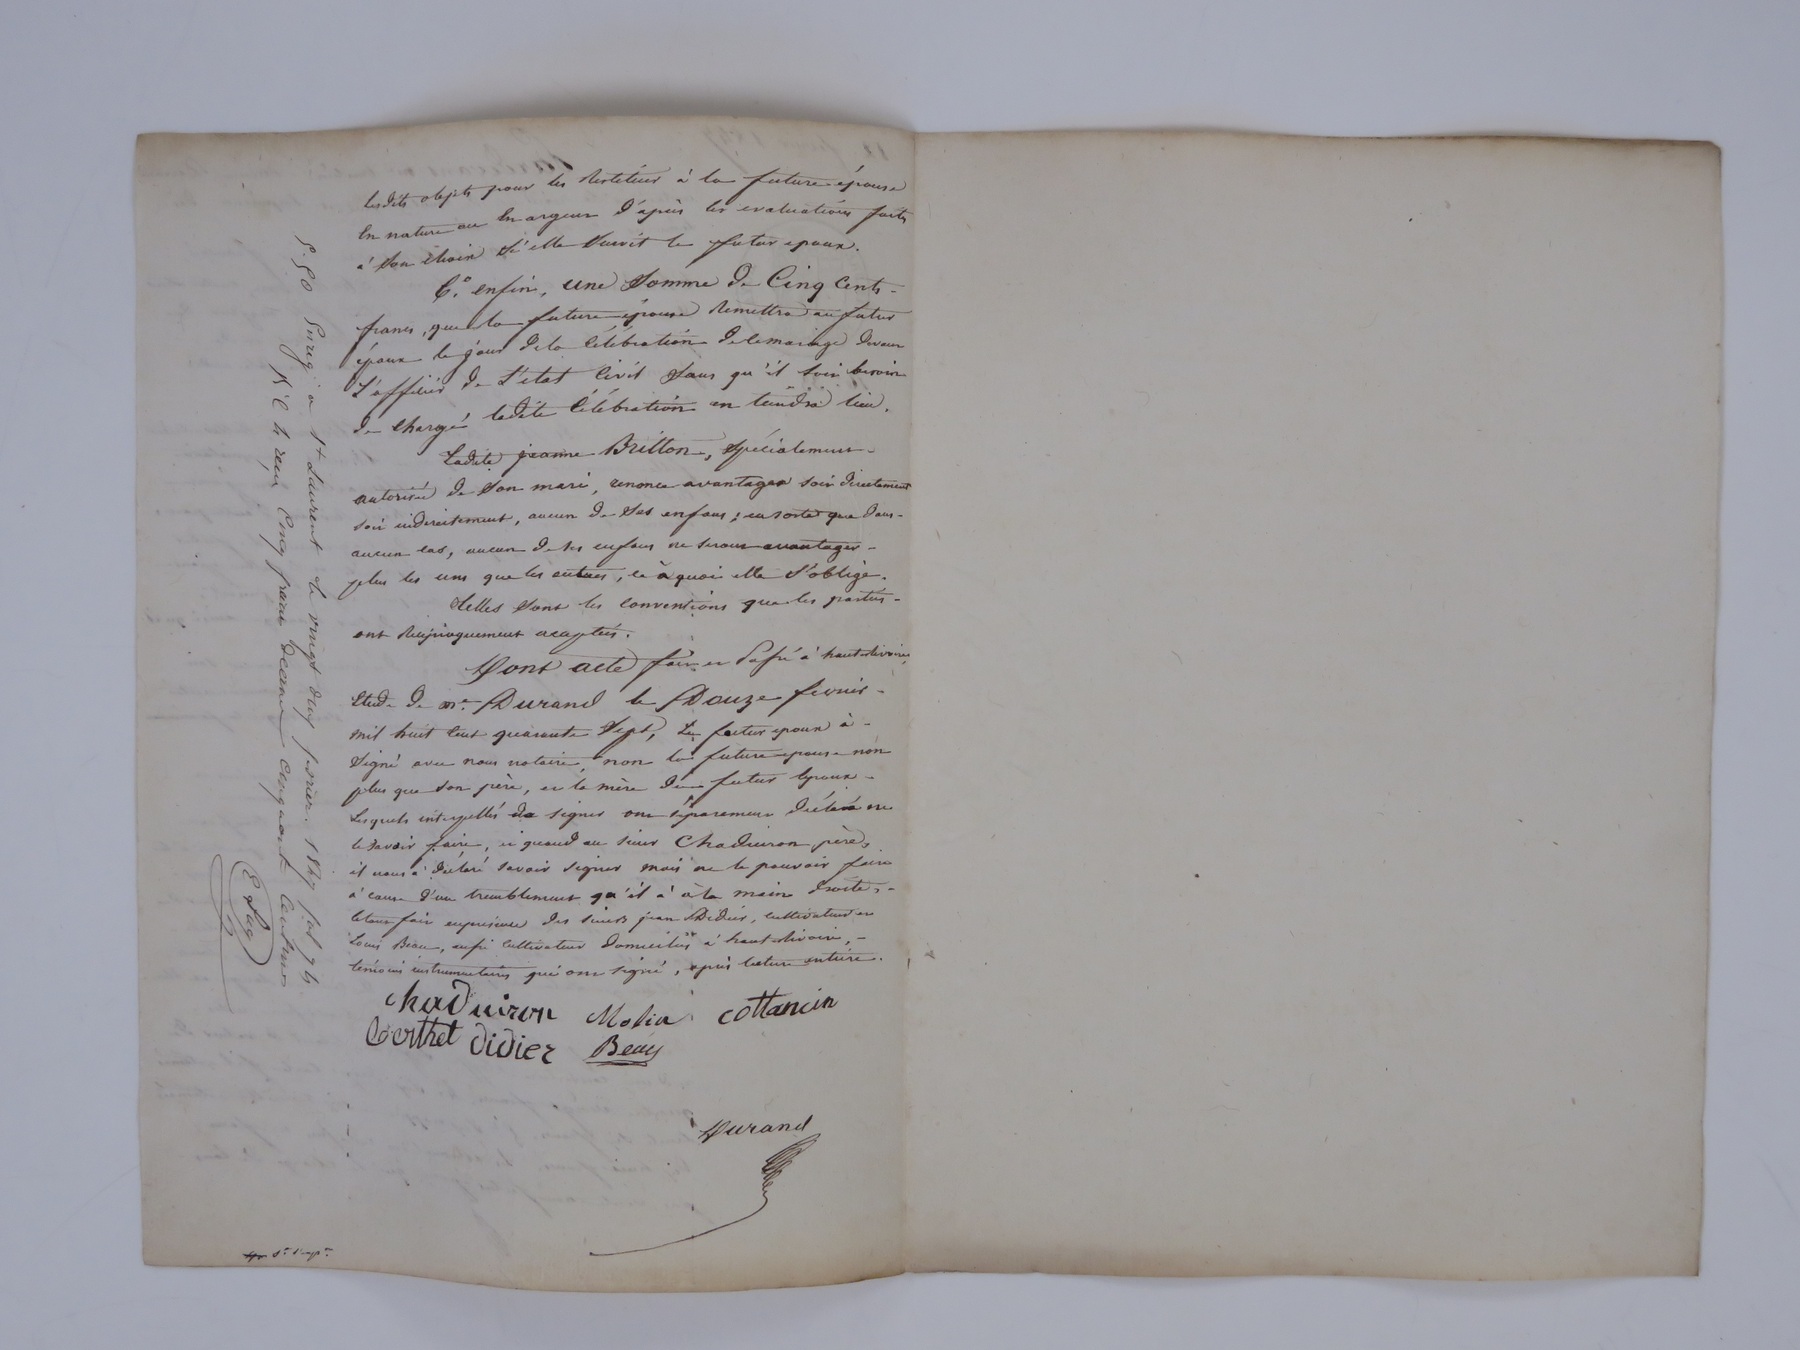 lesdits objets pour les restituer à la future épouse
en nature ou en argent d'après les evaluations faites
à son choix si elle survit le futur epoux.
6.° enfin, une somme de Cinq Cents
francs, que la future épouse remettra au futur
époux le jour de la Célébration de le mariage devant
l'officier de l'etat Civil sans qu'il soit besoin
de charge ladite Célébration en tiendra lieu.
Ladite jeanne Britton, spécialement
autorisée de son mari, renonce avantager soit directement
soit indirectement, aucun de ses enfans ; en sorte que dans
aucun cas, aucun de ses enfans ne seront avantager
plus les uns que les autres, ce à quoi elle s'oblige.
Telles sont les conventions que les parties
ont réciproquement acceptées.
Dont acte fait et passé à hauterivoire,
étude de me. Durand le Douze fevrier
mil huit cent quarante sept, Le futur epoux à
signé avec nous notaire, non la future epouse non
plus que son père, et la mère du futur epoux
lesquels interpellés de signer ont séparement déclaré ne
le savoir faire, et quand au sieur Chaduiron père,
il nous a déclaré savoir signer mais ne le pouvoir faire
à cause d'un tremblement qu'il à à la main droite,
le tout fait en présence des sieurs jean Didier, cultivateur et
Louis Beau, aussi cultivateur domiciliés à hauterivoire,
temoins instrumentaires qui ont signé, après lecture entière.
Chaduiron Molin Cottancin
Berthet Didier Beau
Durand
Enreg. à St Laurent le vingt deux fevrier 1847 fol 94
R. le reçu cinq francs decime cinquante centimes